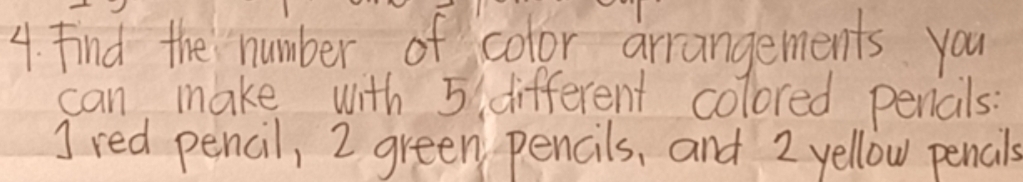 4. Find the number of color arrangements you
can make with 5 different colored pencils:
1 red pencil, 2 green pencils, and 2 yellow pencils